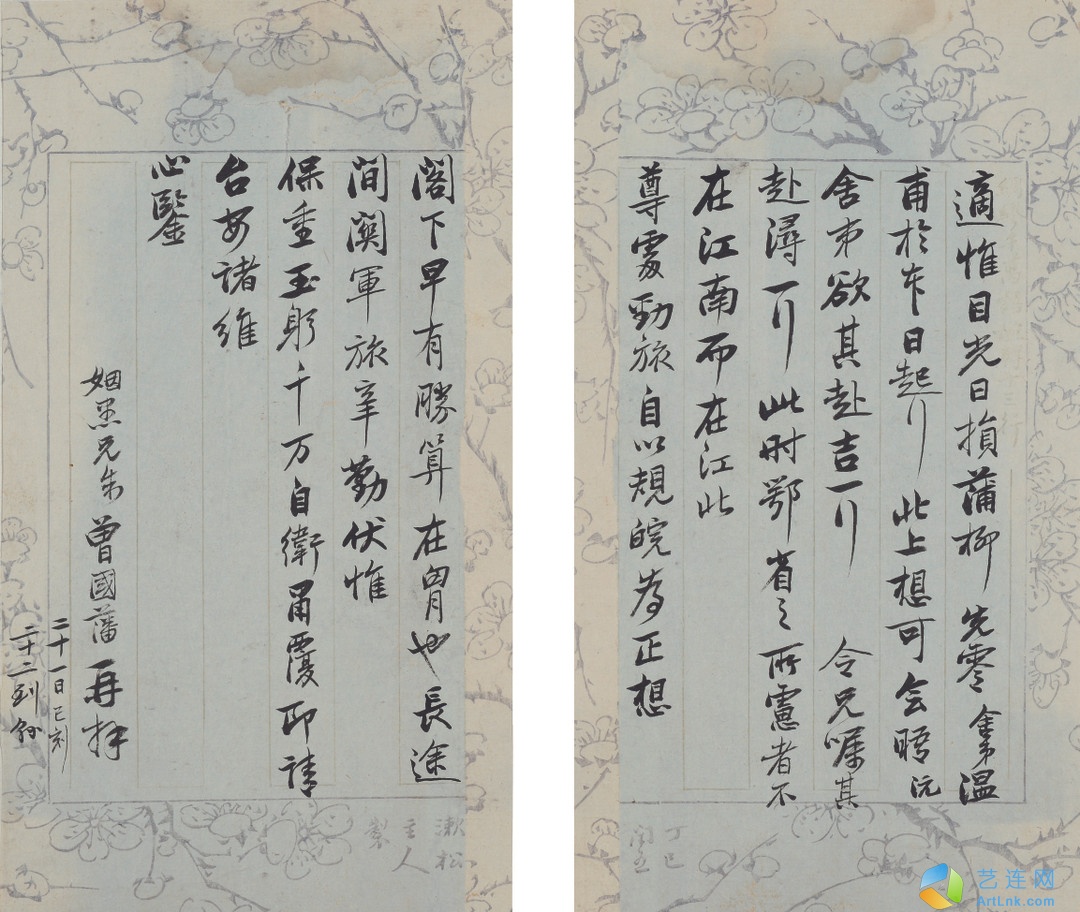 適惟目光日損蒲柳先零舍弟溫
甫於本日起行 此上想可会晤沅
舍弟欲其赴吉一行 令兄嘱其
赴潯一行此时鄂省之所慮者不
在江南而在江北
尊處勁旅自以規皖為正想
丁巳
閏五
閣下早有勝算在胷也長途
間關軍旅辛勤伏惟
保重玉躬千万自衛耑覆即請
台安諸維
心鑒
姻愚兄制曾國藩再拜
二十一日巳刻
二十二到
漱松
主人
製
艺连网
ArtLnk.com